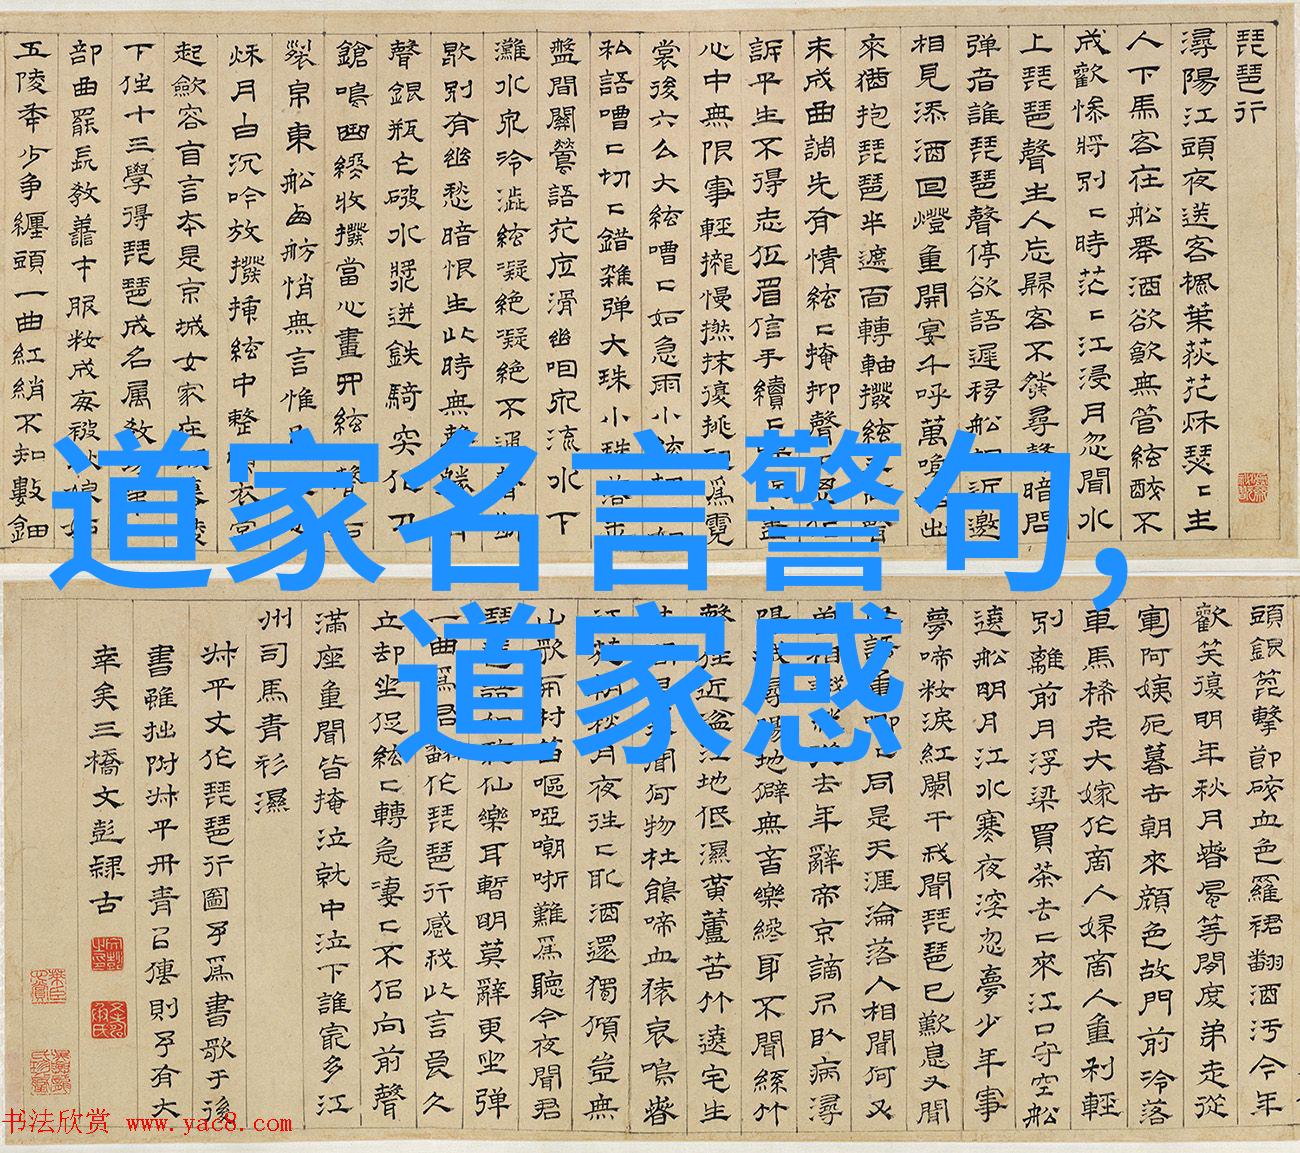 琵琶行
潯陽江頭夜送客楓葉荻花秋瑟〻主
人下馬客在船舉酒欲飲無管絃醉不
成歡慘將別〻時茫〻江浸月忽聞水
上琵琶聲主人忘歸客不發尋聲暗問
彈者誰琵琶聲停欲語遲移船相近邀
相見添酒回燈重開宴千呼萬喚出
來猶抱琵琶半遮面轉軸撥絃聲
未成曲調先有情絃〻掩抑聲似
訴平生不得志低眉信手續〻盡
心中無限事輕攏慢撚抹復挑初爲霓
裳後六么大絃嘈〻如急雨小絃切如
私語嘈〻切〻錯雜彈大珠小珠落玉
盤間關鶯語花底滑幽咽泉流水下
灘水泉冷澁絃凝絕凝絕不通漸
歇別有幽愁暗恨生此時無聲勝
聲銀瓶乍破水漿迸鉄騎突出刀
鎗鳴曲終收撥當心畫四絃聲
裂帛東船西舫悄無言惟見
秋月白沉吟放撥插絃中整衣裳
起斂容自言本是京城女家在陵
下住十三學得琵琶成名屬教坊第
部曲罷長教善才服粧成每被秋娘妬
五陵年少争纏頭一曲紅綃不知數鈿
頭銀篦擊節碎血色羅裙翻酒汚今年
歡笑復明年秋月春風等閒度弟走從
軍阿姨死暮去朝來顏色故門前冷落
車馬稀老大嫁作商人婦商人重利輕
別離前月浮梁買茶去〻來江口守空船
遶船明月江水寒夜深忽夢少年事
夢啼粧淚紅闌干我聞琵琶已歎息又聞
此語重唧〻同是天涯淪落人相聞何必
曾相識從去年辭帝京謫居臥病潯
陽城潯陽地僻無音樂終歲不聞絲竹
聲住近湓江地低濕黄蘆苦竹遶宅生
其間旦聞何物杜鵑啼血猿哀鳴春
江花朝秋月夜往〻取酒還獨傾豈無
山歌與村笛嘔啞嘲哳難爲聽今夜聞君
琵琶語如聽仙樂耳暫明莫辭更坐彈
一曲爲君翻作琵琶行感我此言良久
立却坐促絃〻轉急凄〻不似向前聲
滿座重聞皆掩泣就中泣下誰最多江
州司馬青衫濕
叔平丈作琵琶行圖予爲書歌于後
書雖拙附叔平丹青以傳則予有大
幸矣三橋文彭隸古
道家名言警句,
道家感
书法欣赏 www.yac8.com